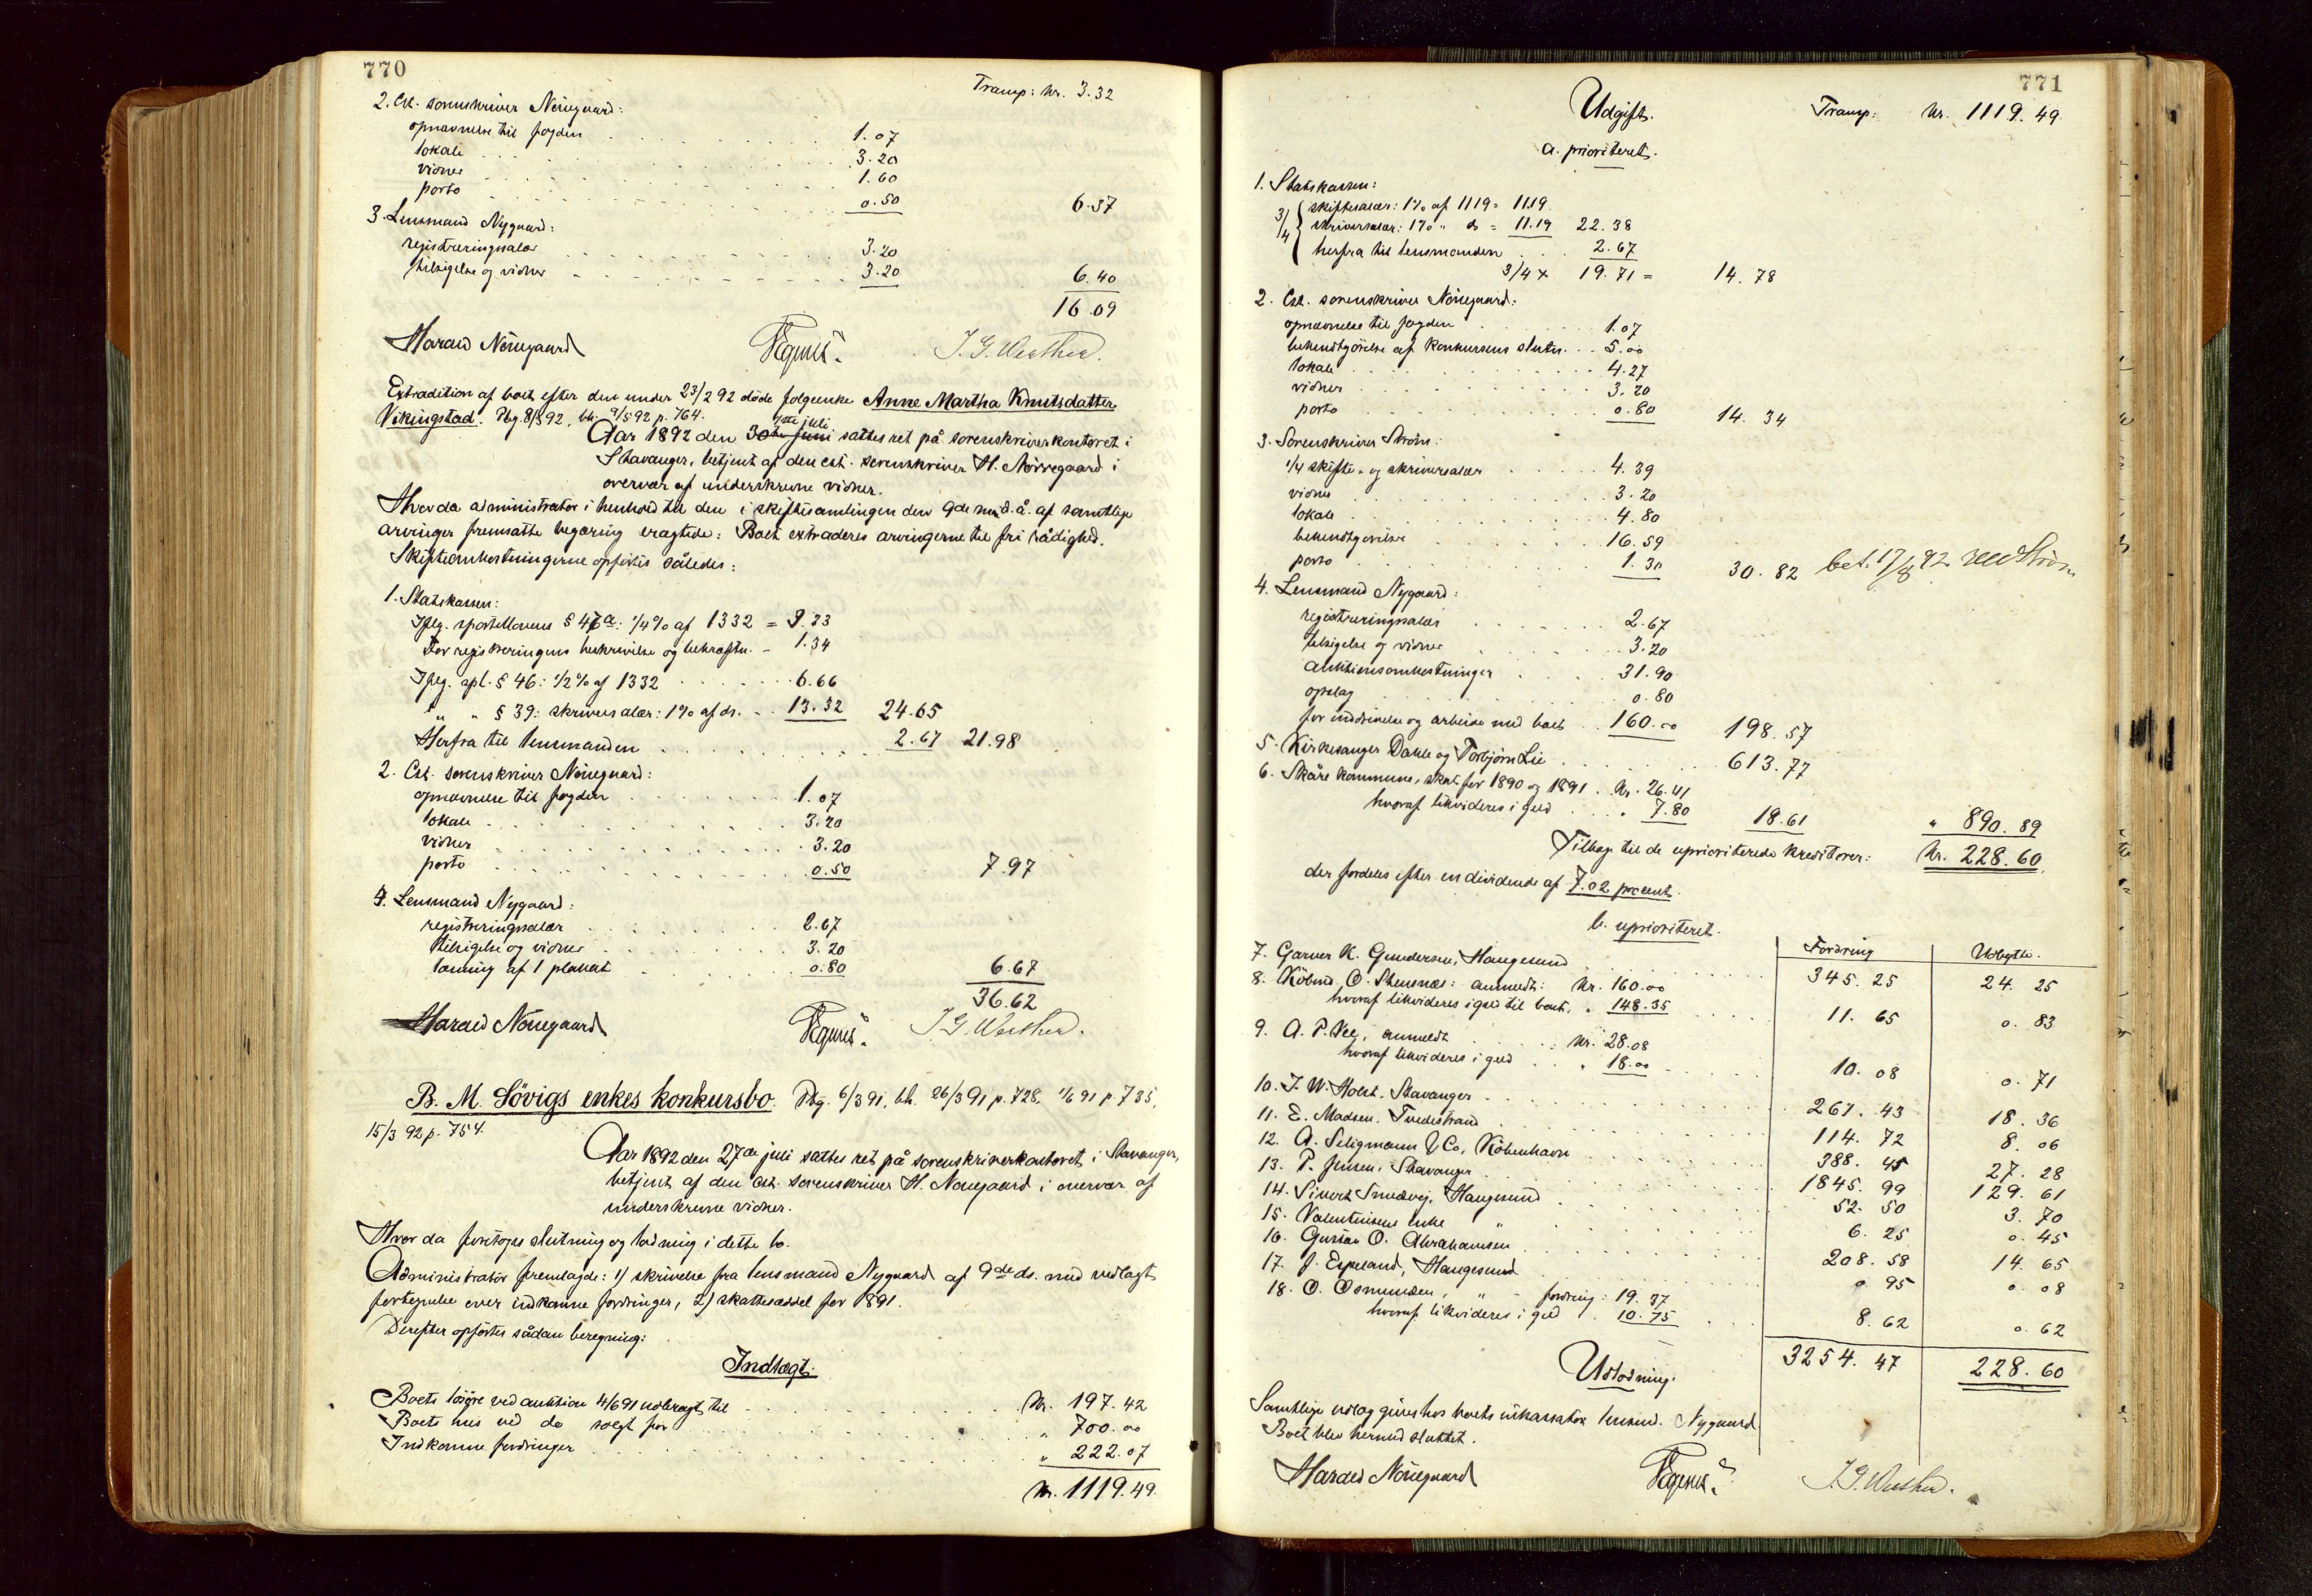 770
Transp: kr. 3.32
2. Cst. sorenskriver Nörregaard:
opnævnelse til fogden . . . 1.07
lokale . . . 3.20
vidner . . . 1.60
porto . . . 0.50 6.37
3. Lensmand Nygaard:
registreringssalær . . . 3.20
tilsigelse og vidner . . . 3.20 6.40
16.09
Harald Nörregaard J. G. Werther.
Extradition af boet efter den under 23/2 92 döde folgeenke Anne Martha Knutsdatter
Vikingstad. Pbg. 8/3 92, bh. 9/5 92 p. 764.
1ste juli
Aar 1892 den 30te juni sattes ret på sorenskriverkontoret i
Stavanger, betjent af den cst. sorenskriver H. Nörregaard i
overvær af underskrevne vidner.
Hvor da administrator i henhold til den i skiftesamlingen den 9de mai d. å. af samtlige
arvinger fremsatte begæring eragtede: Boet extraderes arvingerne til fri rådighed.
Skifteomkostningerne opförtes således:
1. Statskassen:
Iflg. sportellovens § 47 a: 1/4 % af 1332 = 3.33
For registreringens beskrivelse og bekræftn. - 1.34
Iflg. spl. § 46: 1/2 % af 1332 . . . 6.66
" " § 39: skriversalær: 1% af do. . . 13.32 24.65
Herfra til lensmanden . . . 2.67 21.98
2. Cst. sorenskriver Nörregaard:
opnævnelse til fogden . . . 1.07
lokale . . . 3.20
vidner . . . 3.20
porto . . . 0.50 7.97
3. Lensmand Nygaard:
registreringssalær . . . 2.67
tilsigelse og vidner . . . 3.20
læsning af 1 plakat . . . 0.80 6.67
36.62
Harald Nörregaard J. G. Werther.
B. M. Sövigs enkes konkursbo. Pbg. 6/3 91, bh. 26/3 91 p. 728, 1/6 91 p. 735,
15/3 92 p. 754.
Aar 1892 den 27de juli sattes ret på sorenskriverkontoret i Stavanger,
betjent af den cst. sorenskriver H. Nörregaard i overvær af
underskrevne vidner.
Hvor da foretoges slutning og lodning i dette bo.
Administrator fremlagde: 1) skrivelse fra lensmand Nygaard af 9de ds. med vedlagt
fortegnelse over indkomne fordringer, 2) skatteseddel for 1891.
Derefter opförtes sådan beregning:
Indtægt:
Boets lösöre ved auktion 4/6 91 udbragt til . . . kr. 197.42
Boets hus ved do solgt for . . . " 700.00
Indkomne fordringer . . . " 222.07
kr. 1119.49.
771
Udgift. Transp: kr. 1119.49
a. prioriteret.
1. Statskassen:
3/4 { skiftesalær: 1% af 1119 = 11.19
skriversalær: 1% " do = 11.19 22.38
herfra til lensmanden . . 2.67
3/4 x 19.71 = 14.78
2. Cst. sorenskriver Nörregaard:
opnævnelse til fogden . . . 1.07
bekendtgörelse af konkursens slutn. . . 5.00
lokale . . . 4.27
vidner . . . 3.20
porto . . . 0.80 14.34
3. Sorenskriver Ström:
1/4 skifte- og skriversalær . . . 4.39
vidner . . . 3.20
lokale . . . 4.80
bekendtgörelse . . . 16.59
porto . . . 1.30 30.82 bet. 17/8 92 Ström
4. Lensmand Nygaard:
registreringssalær . . . 2.67
tilsigelse og vidner . . . 3.20
auktionsomkostninger . . . 31.90
opslag . . . 0.80
for inddrivelse og arbeide med boet . . 160.00 198.57
5. Kirkesanger Dahle og Torbjörn Lie . . . 613.77
6. Skåre kommune, skat for 1890 og 1891 . kr. 26.41
hvoraf likvideres i gæld . . . " 7.80 18.61 " 890.89
Tilbage til de uprioriterede kreditorer: kr. 228.60.
der fordeles efter en dividende af 7.02 procent.
b. uprioriteret.
Fordring Udbytte.
7. Garver K. Gundersen, Haugesund . . . 345.25 24.25
8. Köbmd. O. Stensnæs: anmeldt: kr. 160.00
hvoraf likvideres i gæld til boet. " 148.35 . . . 11.65 0.83
9. A. P. Vee, anmeldt . . . kr. 28.08
hvoraf likvideres i gæld . . . " 18.00 . . . 10.08 0.71
10. J. W. Holst, Stavanger . . . 261.43 18.36
11. E. Madsen, Tvedestrand . . . 114.72 8.06
12. A. Seligmann & Co, Köbenhavn . . . 388.45 27.28
13. P. Jensen, Stavanger . . . 1845.99 129.61
14. Sivert Smedvej, Haugesund . . . 52.50 3.70
15. Valentinsens enke " . . . 6.25 0.45
16. Gustav O. Abrahamsen . . . 208.58 14.65
17. J. Espeland, Haugesund . . . 0.95 0.08
18. O. Osmundsen, " fordring: 19.37
hvoraf likvideres i gæld . 10.75 . . . 8.62 0.62
3254.47 228.60
Udlodning.
Samtlige udlæg gives hos boets inkassator lensmd. Nygaard
Boet blev hermed sluttet.
Harald Nörregaard J. G. Werther.